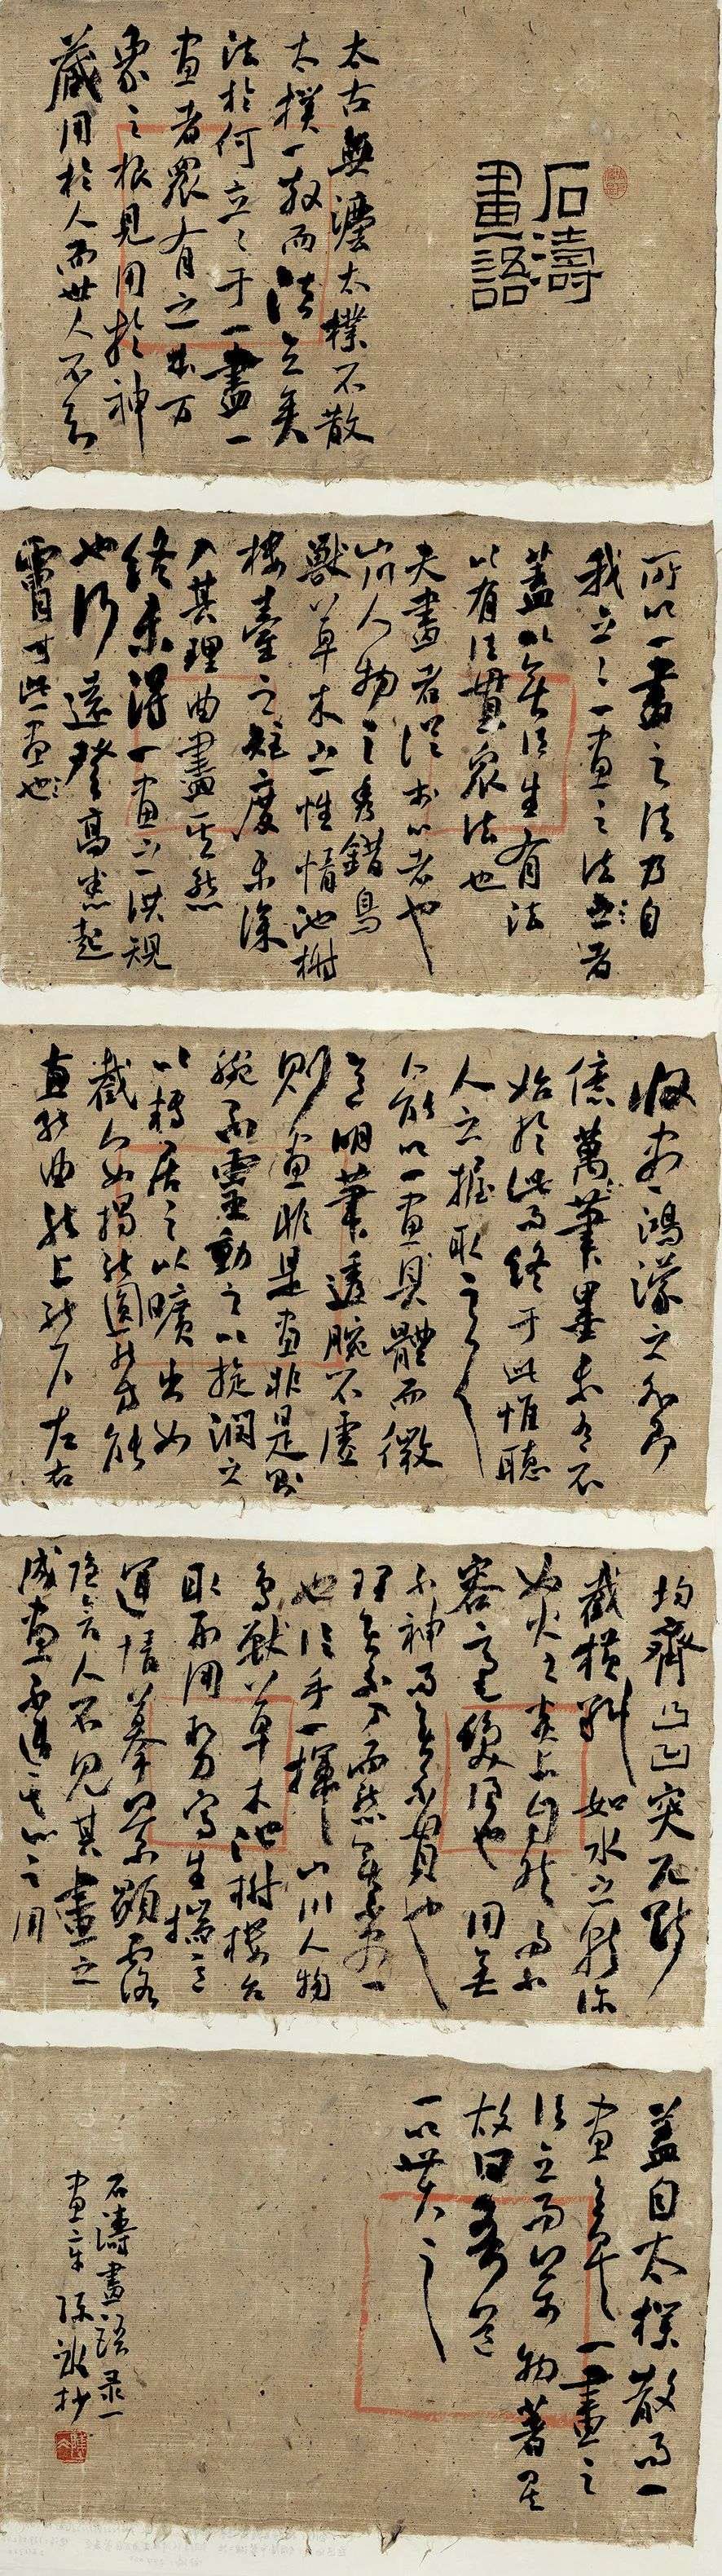 石濤
畫語
太古無灋太樸不散
太樸一散而法立矣
法於何立立于一畫一
畫者眾有之本万
象之根見用於神
藏用於人而世人不知
所以一畫之法乃自
我立立一畫之法者
蓋以無法生有法
以有法貫眾法也
夫畫者從於心者也
山川人物之秀錯鳥
獸草木之性情池榭
樓臺之矩度未深
入其理曲盡其態
終未得一畫之洪規
也行遠登高悉起
膚寸此一畫也
收盡鴻濛之外即
億萬筆墨未有不
始於此而終于此惟聽
人之握取之
人能以一畫具體而微
意明筆透腕不虛
則畫非是畫非是則
腕不靈動之以旋潤之
以轉居之以曠出如
截入如揭能圓能方能
直能曲能上能下左右
均齊凸凹突兀斷
截橫斜如水之就深
如火之炎上自然而不
容毫髮強也用無
不神而法無不貫也
理無不入而態無不盡也一
信手一揮山川人物
鳥獸草木池榭樓台
取形用勢寫生揣意
運情摹景顯露
隱含人不見其畫之
成畫不違其心之用
蓋自太樸散而一
畫之法立一畫之
法立而萬物著矣
故曰吾道
一以貫之
石濤畫語录一
畫章 抄